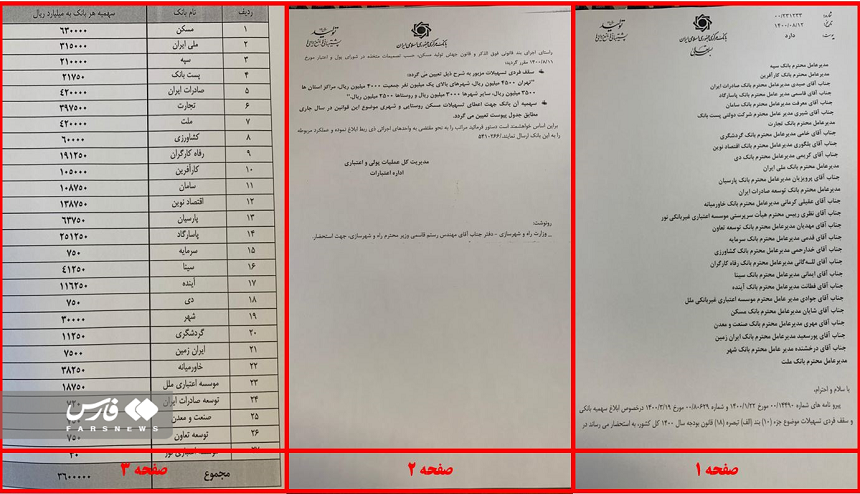 شماره: ۰۰/۲۳۱۲۳۳
تاریخ: ۱۴۰۰/۰۸/۱۲
پیوست: دارد
بانک مرکزی جمهوری اسلامی ایران
مدیرعامل محترم بانک سپه
مدیرعامل محترم بانک کارآفرین
جناب آقای صیدی مدیرعامل محترم بانک صادرات ایران
جناب آقای قاسمی مدیرعامل محترم بانک پاسارگاد
جناب آقای معرفت مدیرعامل محترم بانک سامان
جناب آقای شیری مدیرعامل محترم شرکت دولتی پست بانک
مدیرعامل محترم بانک تجارت
جناب آقای خامی مدیرعامل محترم بانک گردشگری
جناب آقای بلگوری مدیرعامل محترم بانک اقتصاد نوین
جناب آقای کریمی مدیرعامل محترم بانک دی
مدیرعامل محترم بانک ملی ایران
جناب آقای پرویزیان مدیرعامل محترم بانک پارسیان
مدیرعامل محترم بانک توسعه صادرات ایران
جناب آقای عقیلی کرمانی مدیرعامل محترم بانک خاورمیانه
جناب آقای نظری رییس محترم هیأت سرپرستی موسسه اعتباری غیربانکی نور
جناب آقای مهدیان مدیرعامل محترم بانک توسعه تعاون
جناب آقای قدمی مدیرعامل محترم بانک سرمایه
جناب آقای خدارحمی مدیرعامل محترم بانک کشاورزی
جناب آقای لله‌گانی مدیرعامل محترم بانک رفاه کارگران
جناب آقای ایمانی مدیرعامل محترم بانک سینا
جناب آقای فطانت مدیرعامل محترم بانک آینده
جناب آقای جوادی مدیر عامل محترم موسسه اعتباری غیربانکی ملل
جناب آقای شایان مدیرعامل محترم بانک مسکن
جناب آقای مهری مدیرعامل محترم بانک صنعت و معدن
جناب آقای پورسعید مدیرعامل محترم بانک ایران زمین
جناب آقای درخشنده مدیر عامل محترم بانک شهر
مدیرعامل محترم بانک ملت
با سلام و احترام،
پیرو نامه های شماره ۰۰/۱۴۴۹۰ مورخ ۱۴۰۰/۱/۲۲ و شماره ۰۰/۸۰۶۲۹ مورخ ۱۴۰۰/۳/۱۹ درخصوص ابلاغ سهمیه بانکی
و سقف فردی تسهیلات موضوع جزء (۱۰) بند (الف) تبصره (۱۸) قانون بودجه سال ۱۴۰۰ کل کشور، به استحضار می رساند در
صفحه ۱
بانک مرکزی جمهوری اسلامی ایران
راستای اجرای بند قانونی فوق الذکر و قانون جهش تولید مسکن، حسب تصمیمات متخذه در شورای پول و اعتبار مورخ
۱۴۰۰/۸/۱۱ مقرر گردید:
سقف فردی تسهیلات مزبور به شرح ذیل تعیین می گردد:
"تهران ۴۵۰۰ میلیون ریال، شهرهای بالای یک میلیون نفر جمعیت ۴۰۰۰ میلیون ریال، مراکز استان ها
۳۵۰۰ میلیون ریال، سایر شهرها ۳۰۰۰ میلیون ریال و روستاها ۲۵۰۰ میلیون ریال."
سهمیه آن بانک جهت اعطای تسهیلات مسکن روستایی و شهری موضوع این قوانین در سال جاری
مطابق جدول پیوست تعیین می گردد.
براین اساس خواهشمند است دستور فرمائید مراتب را به نحو مقتضی به واحدهای اجرائی ذی ربط ابلاغ نموده و عملکرد مربوطه
را به این بانک ارسال نمایند./۵۴۱۰۲۶۶
مدیریت کل عملیات پولی و اعتباری
اداره اعتبارات
رونوشت:
_ وزارت راه و شهرسازی - دفتر جناب آقای مهندس رستم قاسمی وزیر محترم راه و شهرسازی، جهت استحضار.
صفحه ۲
ردیف نام بانک سهمیه هر بانک به میلیارد ریال
۱ مسکن ۶۳۰۰۰۰
۲ ملی ایران ۳۱۵۰۰۰
۳ سپه ۲۱۰۰۰۰
۴ پست بانک ۲۱۷۵۰
۵ صادرات ایران ۴۲۰۰۰۰
۶ تجارت ۳۹۷۵۰۰
۷ ملت ۴۲۰۰۰۰
۸ کشاورزی ۶۰۰۰۰
۹ رفاه کارگران ۱۹۱۲۵۰
۱۰ کارآفرین ۱۰۵۰۰۰
۱۱ سامان ۱۰۸۷۵۰
۱۲ اقتصاد نوین ۱۳۸۷۵۰
۱۳ پارسیان ۶۳۷۵۰
۱۴ پاسارگاد ۲۵۱۲۵۰
۱۵ سرمایه ۷۵۰
۱۶ سینا ۴۱۲۵۰
۱۷ آینده ۱۱۶۲۵۰
۱۸ دی ۷۵۰
۱۹ شهر ۳۰۰۰۰
۲۰ گردشگری ۱۱۲۵۰
۲۱ ایران زمین ۷۵۰۰
۲۲ خاورمیانه ۳۸۲۵۰
۲۳ موسسه اعتباری ملل ۱۸۷۵۰
۲۴ توسعه صادرات ایران
۲۵ صنعت و معدن
۲۶ توسعه تعاون ۷۵۰
مجموع ۳۶۰۰۰۰۰
صفحه ۳
فارس
FARSNEWS